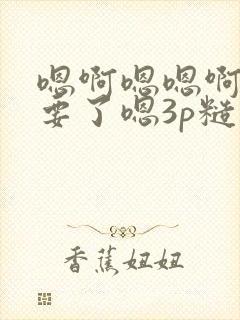 嗯啊嗯嗯啊
要了嗯3p糙
香蕉妞妞